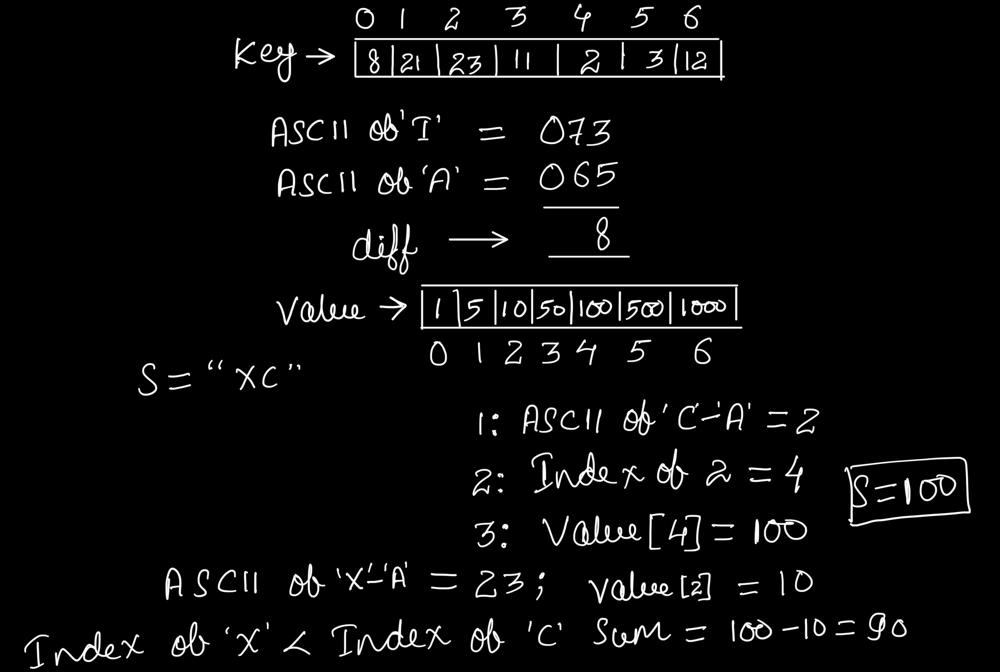 0 1 2 3 4 5 6
Key → 8 21 23 11 2 3 12
ASCII of 'I' = 073
ASCII of 'A' = 065
diff → 8
Value → 1 5 10 50 100 500 1000
0 1 2 3 4 5 6
S = "XC"
1: ASCII of 'C'-'A' = 2
2: Index of 2 = 4
S=100
3: Value[4] = 100
ASCII of 'X'-'A' = 23; value[2] = 10
Index of 'X' < Index of 'C' Sum = 100-10 = 90